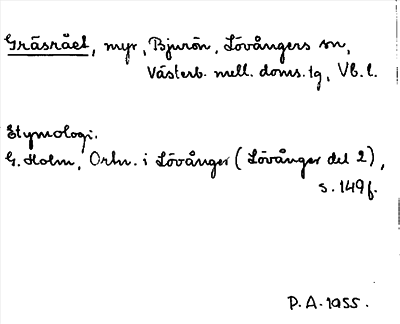 Gräsrået, myr, Bjurön, Lövångers sn,
Västerb. mell. doms. lg, Vb. l.
Etymologi.
G. Holm, Ortn. i Lövånger (Lövånger del 2),
s. 149 f.
P. A. 1955.